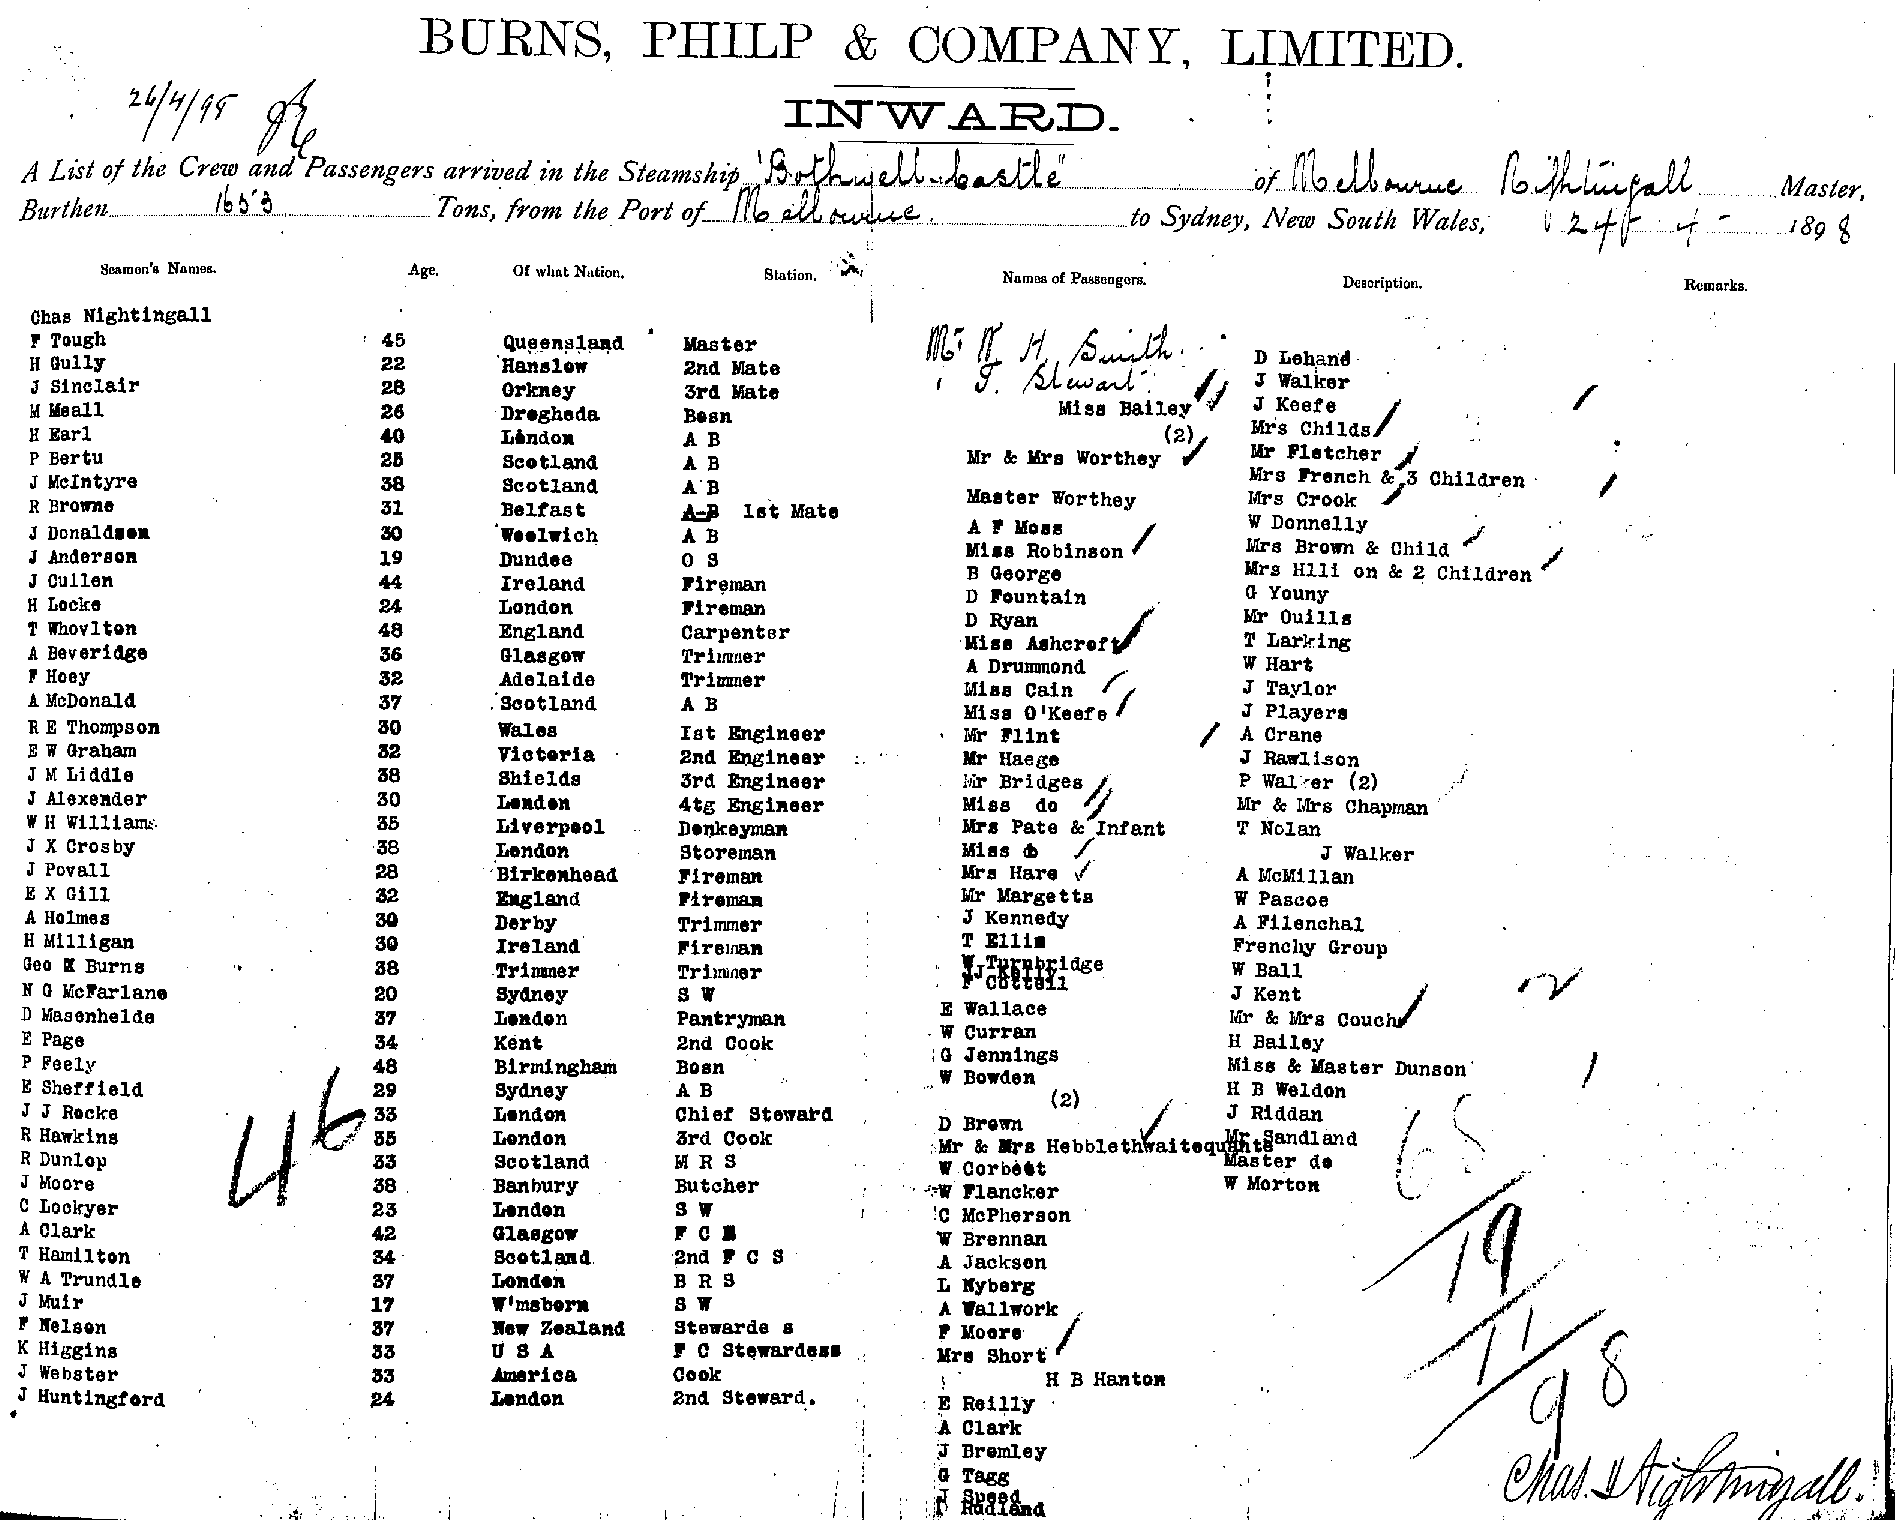 BURNS, PHILP & COMPANY, LIMITED.
INWARD.
26/4/98
A List of the Crew and Passengers arrived in the Steamship "Bothwell-Castle" of Melbourne Nightingall Master,
Burthen 1653 Tons, from the Port of Melbourne. to Sydney, New South Wales, 24 4 1898
Seamen's Names. Age. Of what Nation. Station. Names of Passengers. Description. Remarks.
Chas Nightingall
F Tough 45 Queensland Master
H Gully 22 Hanslow 2nd Mate
J Sinclair 28 Orkney 3rd Mate
M Meall 26 Drogheda Bosn
H Earl 40 London A B
P Bertu 25 Scotland A B
J McIntyre 38 Scotland A B
R Browne 31 Belfast A-B 1st Mate
J Donaldson 30 Woolwich A B
J Anderson 19 Dundee O S
J Cullen 44 Ireland Fireman
H Locke 24 London Fireman
T Whovlton 48 England Carpenter
A Beveridge 36 Glasgow Trimmer
F Hoey 32 Adelaide Trimmer
A McDonald 37 Scotland A B
R E Thompson 30 Wales Ist Engineer
E W Graham 32 Victoria 2nd Engineer
J M Liddle 38 Shields 3rd Engineer
J Alexender 30 London 4tg Engineer
W H Williams 35 Liverpool Donkeyman
J X Crosby 38 London Storeman
J Povall 28 Birkenhead Fireman
E X Gill 32 England Fireman
A Holmes 30 Derby Trimmer
H Milligan 30 Ireland Fireman
Geo Burns 38 Trimmer Trimmer
N G McFarlane 20 Sydney S W
D Masenhelde 37 London Pantryman
E Page 34 Kent 2nd Cook
P Feely 48 Birmingham Bosn
E Sheffield 29 Sydney A B
J J Rocke 33 London Chief Steward
R Hawkins 35 London 3rd Cook
R Dunlop 33 Scotland M R S
J Moore 38 Banbury Butcher
C Lockyer 23 London S W
A Clark 42 Glasgow F C
T Hamilton 34 Scotland 2nd F C S
W A Trundle 37 London B R S
J Muir 17 W'msborn S W
F Nelson 37 New Zealand Stewarde s
K Higgins 33 U S A F C Stewardess
J Webster 33 America Cook
J Huntingford 24 London 2nd Steward.
46
Mr W H Smith
" T. Stewart
Miss Bailey
(2)
Mr & Mrs Worthey
Master Worthey
A F Moss
Miss Robinson
B George
D Fountain
D Ryan
Miss Ashcroft
A Drummond
Miss Cain
Miss O'Keefe
Mr Flint
Mr Haege
Mr Bridges
Miss do
Mrs Pate & Infant
Miss do
Mrs Hare
Mr Margetts
J Kennedy
T Ellis
W Turnbridge
J Kelly
F Cottell
E Wallace
W Curran
G Jennings
W Bowden
(2)
D Brown
Mr & Mrs Hebblethwaite
W Corbett
W Flancker
C McPherson
W Brennan
A Jackson
L Nyberg
A Wallwork
F Moore
Mrs Short
H B Hanton
E Reilly
A Clark
J Bromley
G Tagg
J Speed
Radland
D Lehand
J Walker
J Keefe
Mrs Childs
Mr Fletcher
Mrs French & 3 Children
Mrs Crook
W Donnelly
Mrs Brown & Child
Mrs Hlli on & 2 Children
G Youny
Mr Ouills
T Larking
W Hart
J Taylor
J Players
A Crane
J Rawlison
P Walker (2)
Mr & Mrs Chapman
T Nolan
J Walker
A McMillan
W Pascoe
A Filenchal
Frenchy Group
W Ball
J Kent
Mr & Mrs Couch
H Bailey
Miss & Master Dunson
H B Weldon
J Riddan
Mr Sandland
Master do
W Morton
68
19
11
98
Chas. Nightingall.